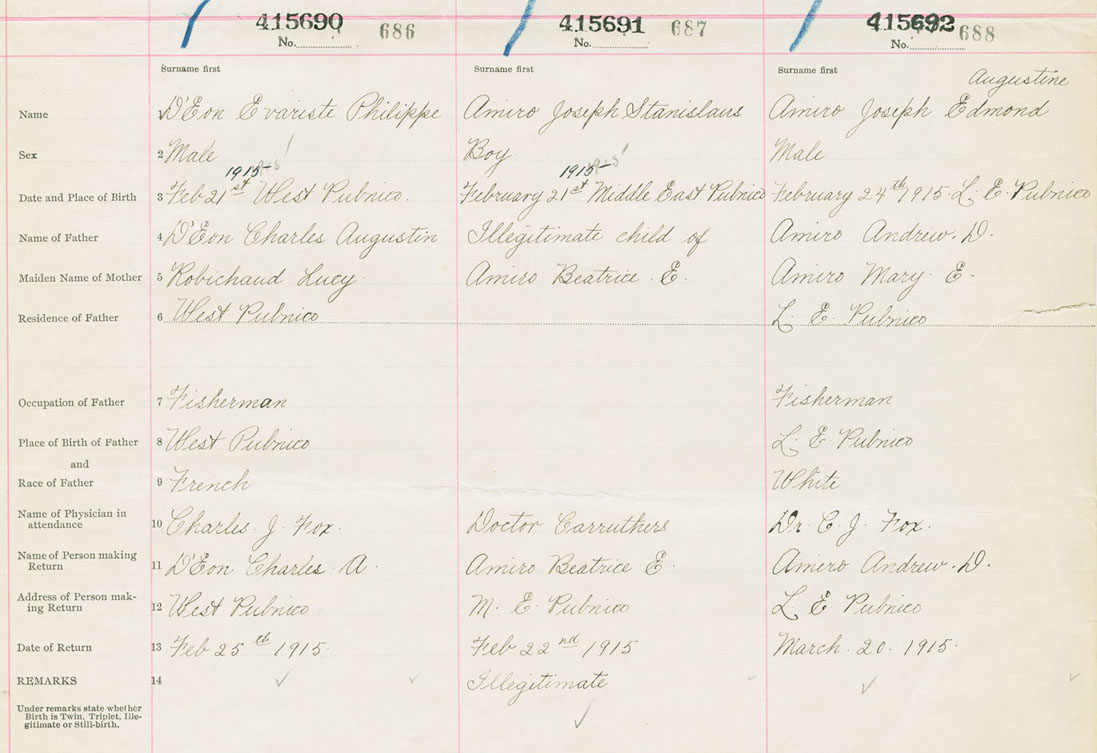 415690 415691 415692
No. 686 No. 687 No. 688
Surname first Surname first Surname first
Augustine
Name D'Eon Evariste Philippe Amiro Joseph Stanislaus Amiro Joseph Edmond
Sex 2 Male Boy Male
1915 1915
Date and Place of Birth 3 Feb 21st West Pubnico. February 21st Middle East Pubnico February 24th 1915. L. E. Pubnico
Name of Father 4 D'Eon Charles Augustin Illegitimate child of Amiro Andrew. D.
Maiden Name of Mother 5 Robichaud Lucy Amiro Beatrice E. Amiro Mary E.
Residence of Father 6 West Pubnico L. E. Pubnico
Occupation of Father 7 Fisherman Fisherman
Place of Birth of Father 8 West Pubnico L. E. Pubnico
and
Race of Father 9 French White
Name of Physician in
attendance 10 Charles J. Fox. Doctor Carruthers Dr C. J. Fox.
Name of Person making
Return 11 D'Eon Charles A. Amiro Beatrice E. Amiro Andrew. D.
Address of Person mak-
ing Return 12 West Pubnico. M. E. Pubnico L. E. Pubnico
Date of Return 13 Feb 25th 1915. Feb 22nd 1915 March. 20. 1915.
REMARKS 14 Illegitimate
Under remarks state whether
Birth is Twin, Triplet, Ille-
gitimate or Still-birth.